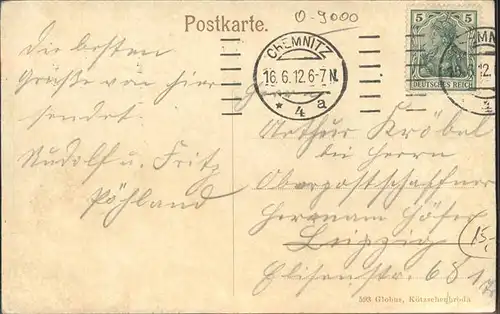 Postkarte.
0-9000
Die besten
Grüße von hier
sendet
Rudolf u. Fritz
Pöhland
CHEMNITZ
16.6.12.6-7N.
* 4 a
5 5
DEUTSCHES REICH
Arthur Kröbel
bei Herrn
Oberpostschaffner
Hermann Höfer
Leipzig
Elisenstr. 68
15,-
593 Globus, Kötzschenbroda